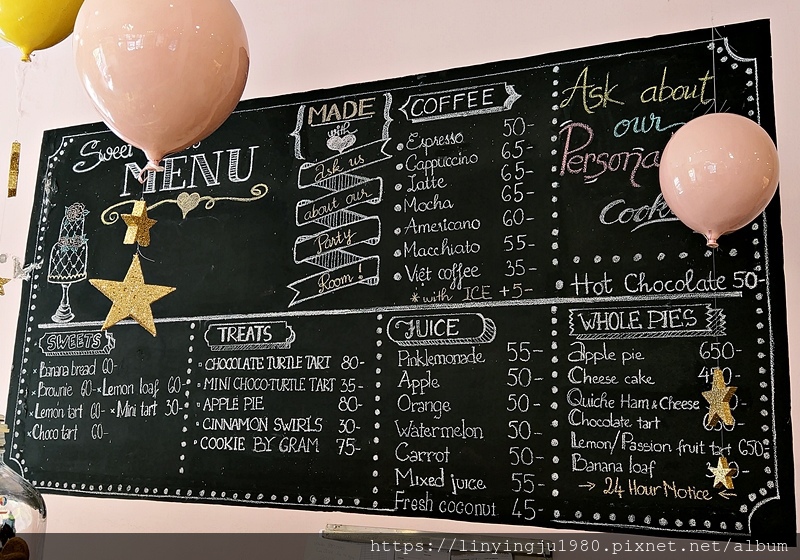 Sweet
MENU
MADE
with
ask us
about our
Party
Room!
COFFEE
Espresso 50-
Cappuccino 65-
Latte 65-
Mocha 65-
Americano 60-
Macchiato 55-
Viêt coffee 35-
* with ICE +5-
Ask about
our
Hot Chocolate 50-
SWEETS
× Banana bread 60-
× Brownie 60- × Lemon loaf 60-
× Lemon tart 60- × Mini tart 30-
× Choco tart 60-
TREATS
CHOCOLATE TURTLE TART 80-
MINI CHOCO-TURTLE TART 35-
APPLE PIE 80-
CINNAMON SWIRLS 30-
COOKIE BY GRAM 75-
JUICE
Pinklemonade 55-
Apple 50-
Orange 50-
Watermelon 50-
Carrot 50-
Mixed juice 55-
Fresh coconut 45-
WHOLE PIES
apple pie 650-
Cheese cake
Quiche Ham & Cheese
Chocolate tart
Lemon/Passion fruit tart 650-
Banana loaf
→ 24 Hour Notice ←
https://linyingju1980.pixnet.net/album